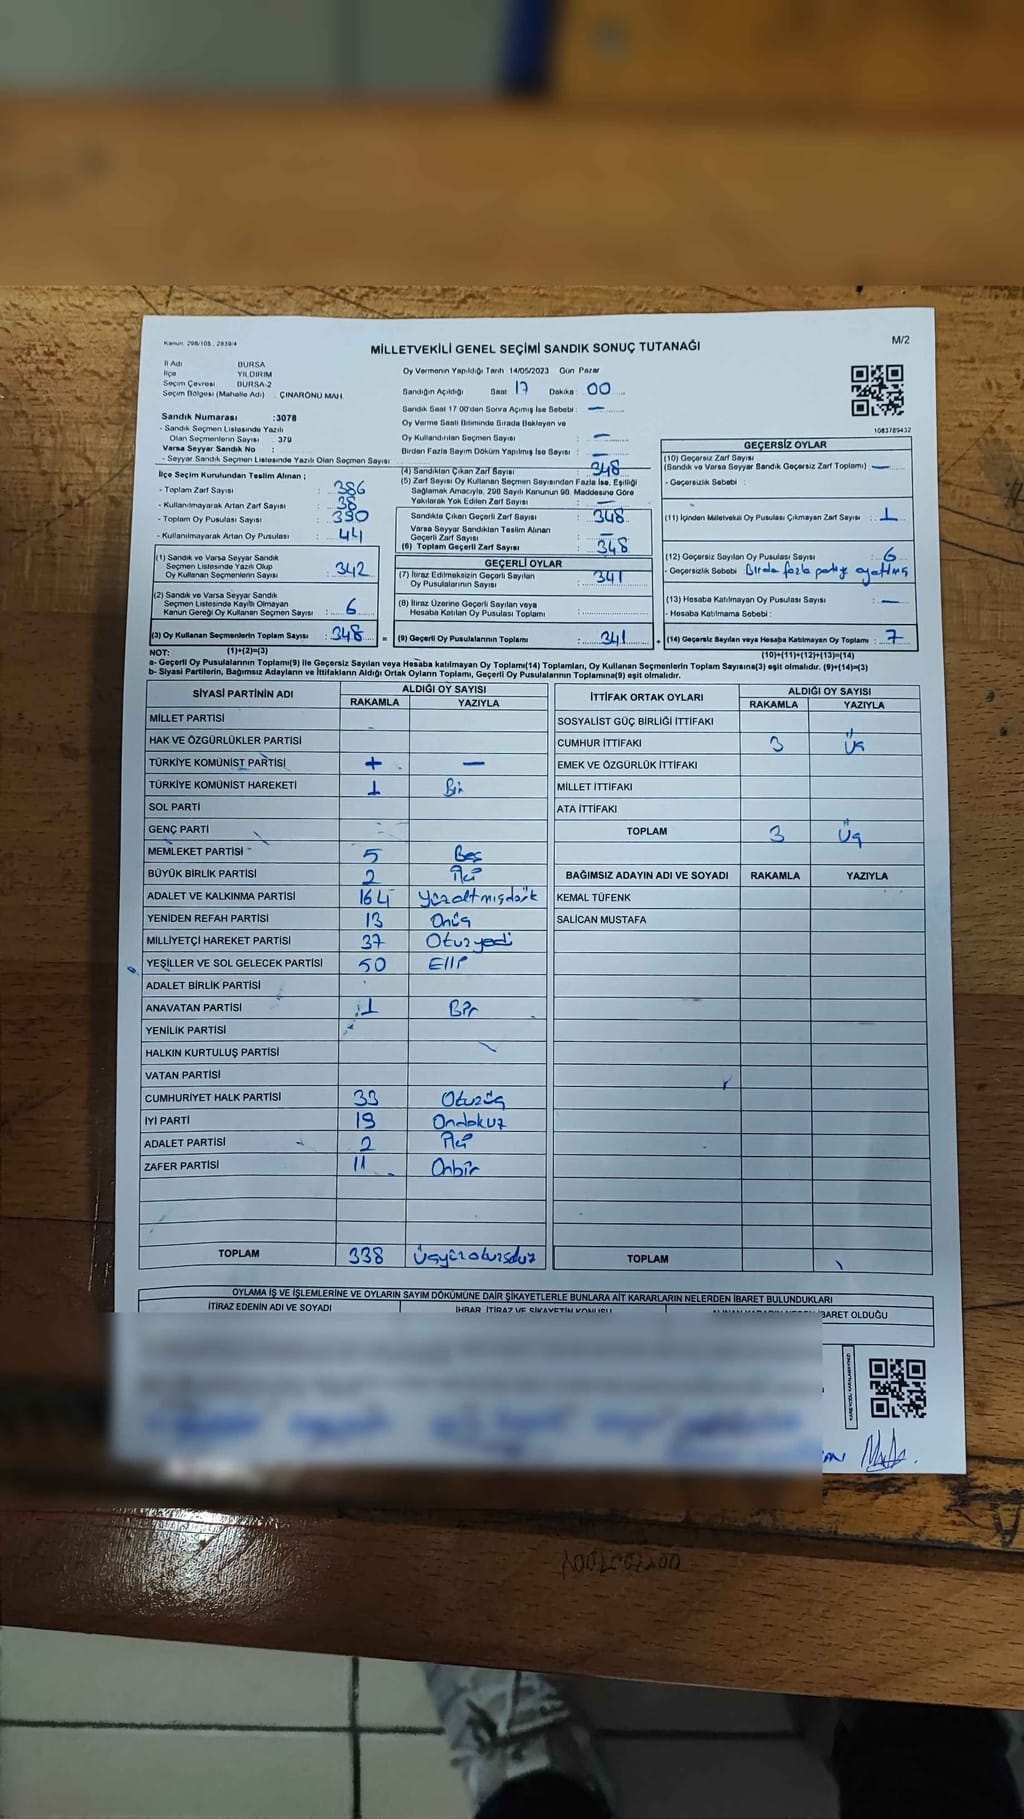 Kanun: 298/105, 2839/4
M/2
MİLLETVEKİLİ GENEL SEÇİMİ SANDIK SONUÇ TUTANAĞI
İl Adı BURSA
İlçe YILDIRIM
Seçim Çevresi BURSA-2
Seçim Bölgesi (Mahalle Adı) : ÇINARÖNÜ MAH.
Sandık Numarası :3078
- Sandık Seçmen Listesinde Yazılı
Olan Seçmenlerin Sayısı : 379
Varsa Seyyar Sandık No :
- Seyyar Sandık Seçmen Listesinde Yazılı Olan Seçmen Sayısı
Oy Vermenin Yapıldığı Tarih 14/05/2023 Gün Pazar
Sandığın Açıldığı Saat 17 Dakika : 00
Sandık Saat 17 00'den Sonra Açımış İse Sebebi : —
Oy Verme Saati Bitiminde Sırada Bekleyen ve
Oy Kullandırılan Seçmen Sayısı : —
Birden Fazla Sayım Döküm Yapılmış İse Sayısı : —
1083789432
İlçe Seçim Kurulundan Teslim Alınan ;
- Toplam Zarf Sayısı : 386
- Kullanılmayarak Artan Zarf Sayısı : 38
- Toplam Oy Pusulası Sayısı : 390
- Kullanılmayarak Artan Oy Pusulası : 44
(1) Sandık ve Varsa Seyyar Sandık
Seçmen Listesinde Yazılı Olup
Oy Kullanan Seçmenlerin Sayısı : 342
(2) Sandık ve Varsa Seyyar Sandık
Seçmen Listesinde Kayıtlı Olmayan
Kanun Gereği Oy Kullanan Seçmen Sayısı : 6
(3) Oy Kullanan Seçmenlerin Toplam Sayısı : 348
(1)+(2)=(3)
(4) Sandıktan Çıkan Zarf Sayısı : 348
(5) Zarf Sayısı Oy Kullanan Seçmen Sayısından Fazla İse, Eşitliği
Sağlamak Amacıyla, 298 Sayılı Kanunun 98. Maddesine Göre
Yakılarak Yok Edilen Zarf Sayısı : —
Sandıkta Çıkan Geçerli Zarf Sayısı : 348
Varsa Seyyar Sandıktan Teslim Alınan
Geçerli Zarf Sayısı : —
(6) Toplam Geçerli Zarf Sayısı : 348
GEÇERLİ OYLAR
(7) İtiraz Edilmeksizin Geçerli Sayılan
Oy Pusulalarının Sayısı : 341
(8) İtiraz Üzerine Geçerli Sayılan veya
Hesaba Katılan Oy Pusulası Toplamı :
= (9) Geçerli Oy Pusulalarının Toplamı : 341 +
GEÇERSİZ OYLAR
(10) Geçersiz Zarf Sayısı
(Sandık ve Varsa Seyyar Sandık Geçersiz Zarf Toplamı) : —
- Geçersizlik Sebebi :
(11) İçinden Milletvekili Oy Pusulası Çıkmayan Zarf Sayısı : 1
(12) Geçersiz Sayılan Oy Pusulası Sayısı : 6
- Geçersizlik Sebebi
(13) Hesaba Katılmayan Oy Pusulası Sayısı : —
- Hesaba Katılmama Sebebi :
(14) Geçersiz Sayılan veya Hesaba Katılmayan Oy Toplamı : 7
(10)+(11)+(12)+(13)=(14)
NOT:
a- Geçerli Oy Pusulalarının Toplamı(9) ile Geçersiz Sayılan veya Hesaba katılmayan Oy Toplam(14) Toplamları, Oy Kullanan Seçmenlerin Toplam Sayısına(3) eşit olmalıdır. (9)+(14)=(3)
b- Siyasi Partilerin, Bağımsız Adayların ve İttifakların Aldığı Ortak Oyların Toplamı, Geçerli Oy Pusulalarının Toplamına(9) eşit olmalıdır.
SİYASİ PARTİNİN ADI ALDIĞI OY SAYISI
RAKAMLA YAZIYLA
MİLLET PARTİSİ
HAK VE ÖZGÜRLÜKLER PARTİSİ
TÜRKİYE KOMÜNİST PARTİSİ + —
TÜRKİYE KOMÜNİST HAREKETİ 1 Bir
SOL PARTİ
GENÇ PARTİ
MEMLEKET PARTİSİ 5 Beş
BÜYÜK BİRLİK PARTİSİ 2 İki
ADALET VE KALKINMA PARTİSİ 164 Yüzaltmışdörk
YENİDEN REFAH PARTİSİ 13 Onüç
MİLLİYETÇİ HAREKET PARTİSİ 37 Otuzyedi
YEŞİLLER VE SOL GELECEK PARTİSİ 50 Elli
ADALET BİRLİK PARTİSİ
ANAVATAN PARTİSİ 1 Bir
YENİLİK PARTİSİ
HALKIN KURTULUŞ PARTİSİ
VATAN PARTİSİ
CUMHURİYET HALK PARTİSİ 33 Otuzüç
İYİ PARTİ 19 Ondokuz
ADALET PARTİSİ 2 İki
ZAFER PARTİSİ 11 Onbir
TOPLAM 338
İTTİFAK ORTAK OYLARI ALDIĞI OY SAYISI
RAKAMLA YAZIYLA
SOSYALİST GÜÇ BİRLİĞİ İTTİFAKI
CUMHUR İTTİFAKI 3 Üç
EMEK VE ÖZGÜRLÜK İTTİFAKI
MİLLET İTTİFAKI
ATA İTTİFAKI
TOPLAM 3 Üç
BAĞIMSIZ ADAYIN ADI VE SOYADI RAKAMLA YAZIYLA
KEMAL TÜFENK
SALİCAN MUSTAFA
TOPLAM
OYLAMA İŞ VE İŞLEMLERİNE VE OYLARIN SAYIM DÖKÜMÜNE DAİR ŞİKAYETLERLE BUNLARA AİT KARARLARIN NELERDEN İBARET BULUNDUKLARI
İTİRAZ EDENİN ADI VE SOYADI İHBAR, İTİRAZ VE ŞİKAYETİN KONUSU ALINAN KARARIN NEDEN İBARET OLDUĞU